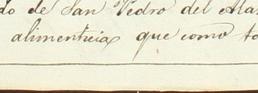 do de San Pedro del Ala
alimenticia que como to